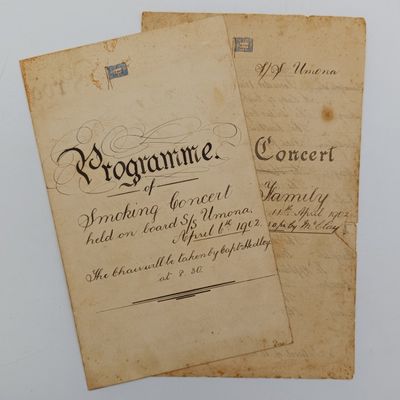 Programme.
of
Smoking Concert
held on board S/S Umona.
April 6th 1902.
The Chair will be taken by Capt. Hedley
at 8.30.
S/S Umona
Concert
Family
11th April 1902
by